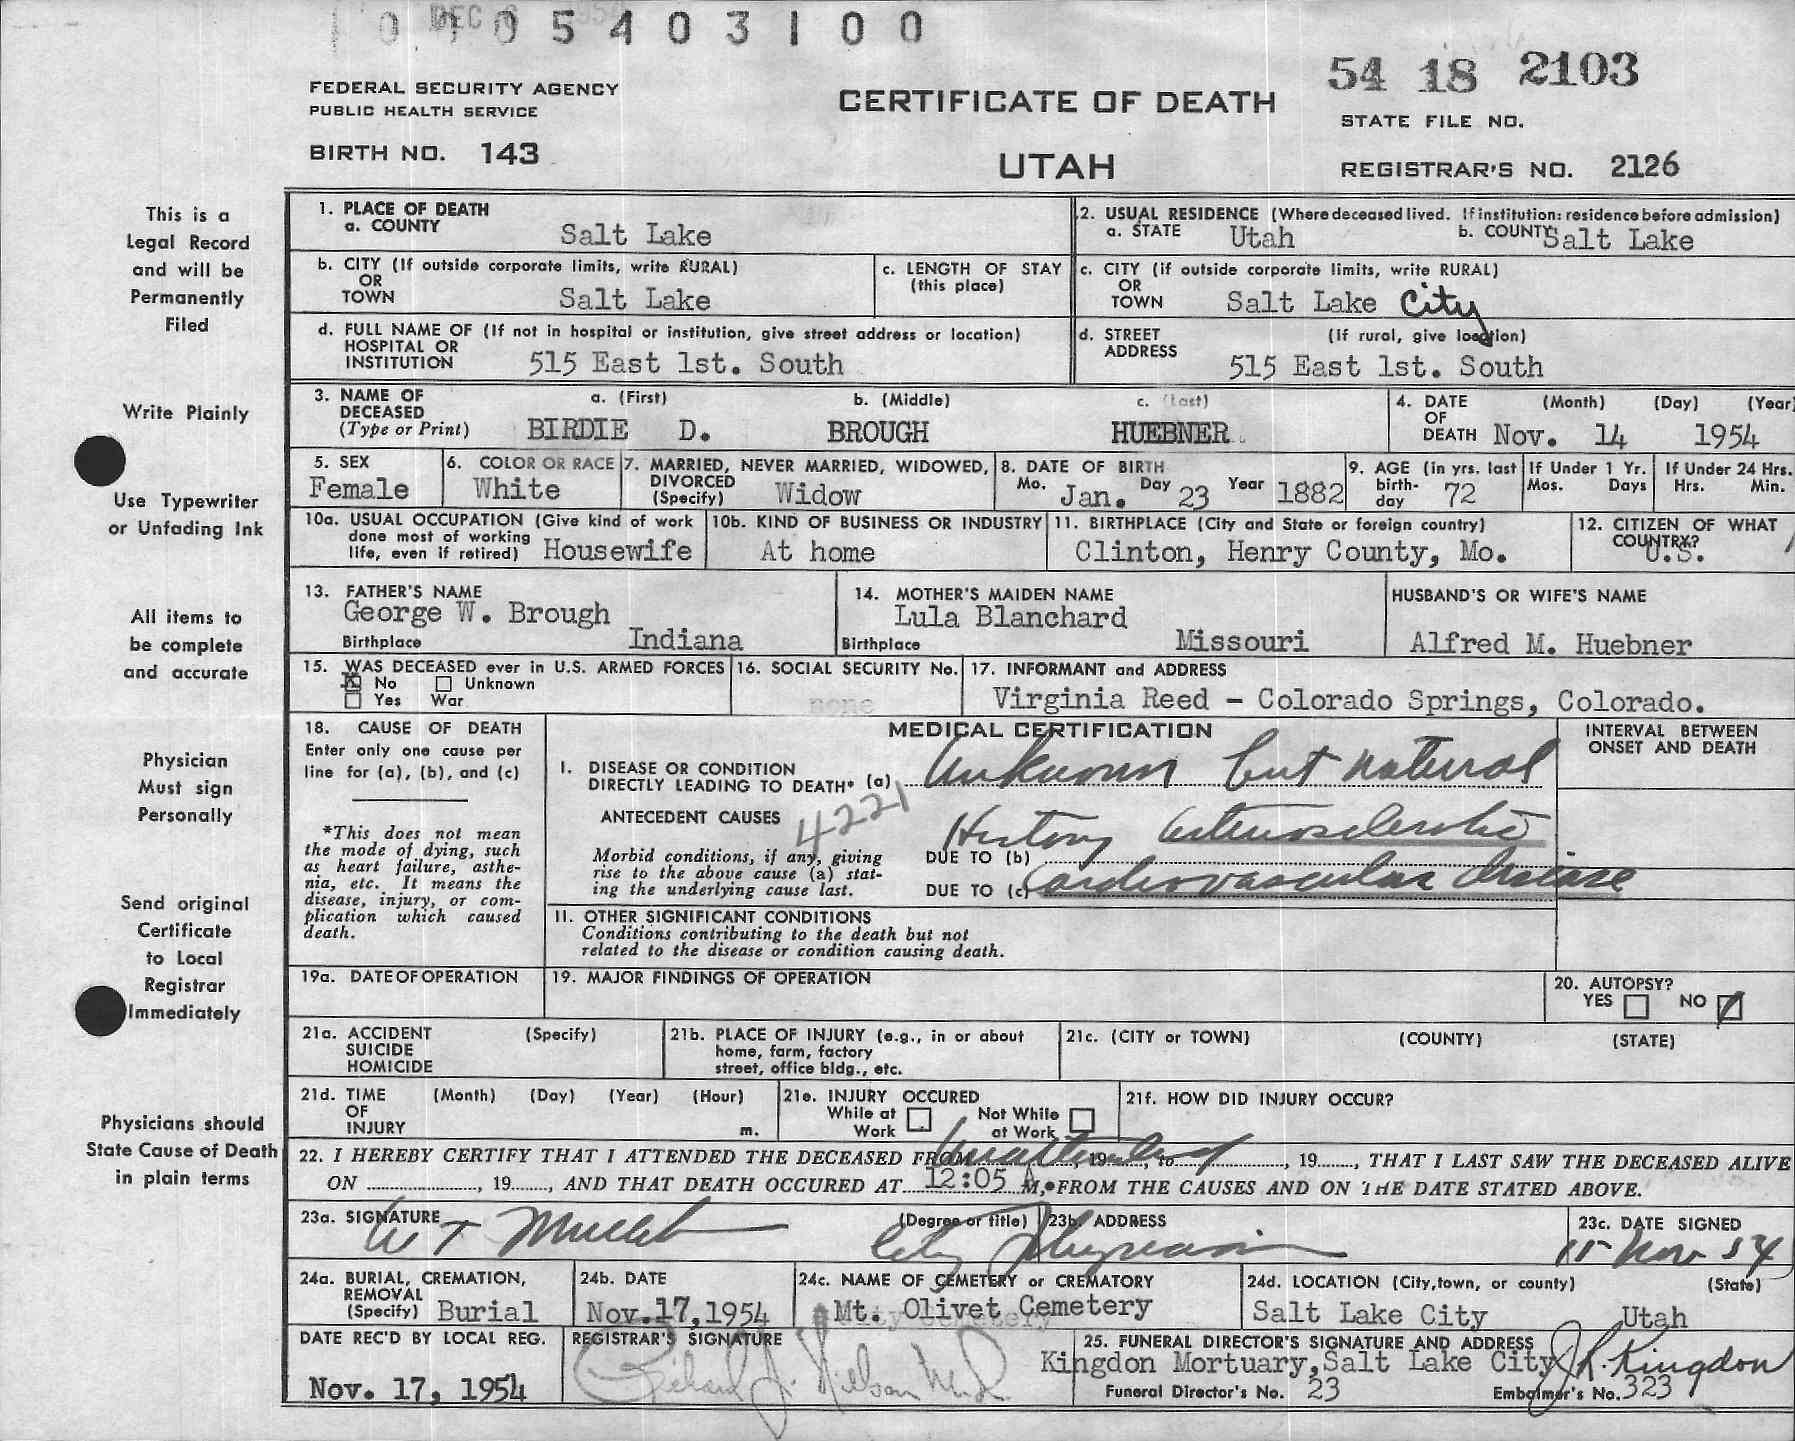 DEC
0 5 4 0 3 1 0 0
54 18 2103
FEDERAL SECURITY AGENCY
PUBLIC HEALTH SERVICE
CERTIFICATE OF DEATH
STATE FILE NO.
BIRTH NO. 143
UTAH
REGISTRAR'S NO. 2126
This is a
Legal Record
and will be
Permanently
Filed
Write Plainly
Use Typewriter
or Unfading Ink
All items to
be complete
and accurate
Physician
Must sign
Personally
Send original
Certificate
to Local
Registrar
Immediately
Physicians should
State Cause of Death
in plain terms
1. PLACE OF DEATH
a. COUNTY Salt Lake
2. USUAL RESIDENCE (Where deceased lived. If institution: residence before admission)
a. STATE Utah b. COUNTY Salt Lake
b. CITY (If outside corporate limits, write RURAL)
OR
TOWN Salt Lake
c. LENGTH OF STAY
(this place)
c. CITY (if outside corporate limits, write RURAL)
OR
TOWN Salt Lake City
d. FULL NAME OF (If not in hospital or institution, give street address or location)
HOSPITAL OR
INSTITUTION 515 East 1st. South
d. STREET (If rural, give location)
ADDRESS 515 East 1st. South
3. NAME OF a. (First) b. (Middle) c. (Last)
DECEASED
(Type or Print) BIRDIE D. BROUGH HUEBNER
4. DATE (Month) (Day) (Year)
OF
DEATH Nov. 14 1954
5. SEX
Female
6. COLOR OR RACE
White
7. MARRIED, NEVER MARRIED, WIDOWED,
DIVORCED
(Specify) Widow
8. DATE OF BIRTH
Mo. Jan. Day 23 Year 1882
9. AGE (in yrs. last
birth-
day 72
If Under 1 Yr.
Mos. Days
If Under 24 Hrs.
Hrs. Min.
10a. USUAL OCCUPATION (Give kind of work
done most of working
life, even if retired) Housewife
10b. KIND OF BUSINESS OR INDUSTRY
At home
11. BIRTHPLACE (City and State or foreign country)
Clinton, Henry County, Mo.
12. CITIZEN OF WHAT
COUNTRY?
U.S.
13. FATHER'S NAME
George W. Brough
Birthplace Indiana
14. MOTHER'S MAIDEN NAME
Lula Blanchard
Birthplace Missouri
HUSBAND'S OR WIFE'S NAME
Alfred M. Huebner
15. WAS DECEASED ever in U.S. ARMED FORCES
X No Unknown
Yes War
16. SOCIAL SECURITY No.
none
17. INFORMANT and ADDRESS
Virginia Reed - Colorado Springs, Colorado.
18. CAUSE OF DEATH
Enter only one cause per
line for (a), (b), and (c)
*This does not mean
the mode of dying, such
as heart failure, asthe-
nia, etc. It means the
disease, injury, or com-
plication which caused
death.
MEDICAL CERTIFICATION
INTERVAL BETWEEN
ONSET AND DEATH
I. DISEASE OR CONDITION
DIRECTLY LEADING TO DEATH* (a) Unknown but natural
4221
ANTECEDENT CAUSES
Morbid conditions, if any, giving
rise to the above cause (a) stat-
ing the underlying cause last.
DUE TO (b) History arteriosclerotic
DUE TO (c) Cardiovascular disease
II. OTHER SIGNIFICANT CONDITIONS
Conditions contributing to the death but not
related to the disease or condition causing death.
19a. DATE OF OPERATION
19. MAJOR FINDINGS OF OPERATION
20. AUTOPSY?
YES NO
21a. ACCIDENT (Specify)
SUICIDE
HOMICIDE
21b. PLACE OF INJURY (e.g., in or about
home, farm, factory
street, office bldg., etc.
21c. (CITY or TOWN) (COUNTY) (STATE)
21d. TIME (Month) (Day) (Year) (Hour)
OF
INJURY m.
21e. INJURY OCCURED
While at Not While
Work at Work
21f. HOW DID INJURY OCCUR?
22. I HEREBY CERTIFY THAT I ATTENDED THE DECEASED FROM Unattended, 19, to, 19, THAT I LAST SAW THE DECEASED ALIVE
ON, 19, AND THAT DEATH OCCURED AT 12:05 A M, FROM THE CAUSES AND ON THE DATE STATED ABOVE.
23a. SIGNATURE (Degree or title)
City Physician
23b. ADDRESS
23c. DATE SIGNED
15 Nov 54
24a. BURIAL, CREMATION,
REMOVAL
(Specify) Burial
24b. DATE
Nov.17,1954
24c. NAME OF CEMETERY or CREMATORY
Mt. Olivet Cemetery
24d. LOCATION (City,town, or county) (State)
Salt Lake City Utah
DATE REC'D BY LOCAL REG.
Nov. 17, 1954
REGISTRAR'S SIGNATURE
Richard J. Nilson M.D.
25. FUNERAL DIRECTOR'S SIGNATURE AND ADDRESS
Kingdon Mortuary,Salt Lake City J.R. Kingdon
Funeral Director's No. 23 Embalmer's No. 323